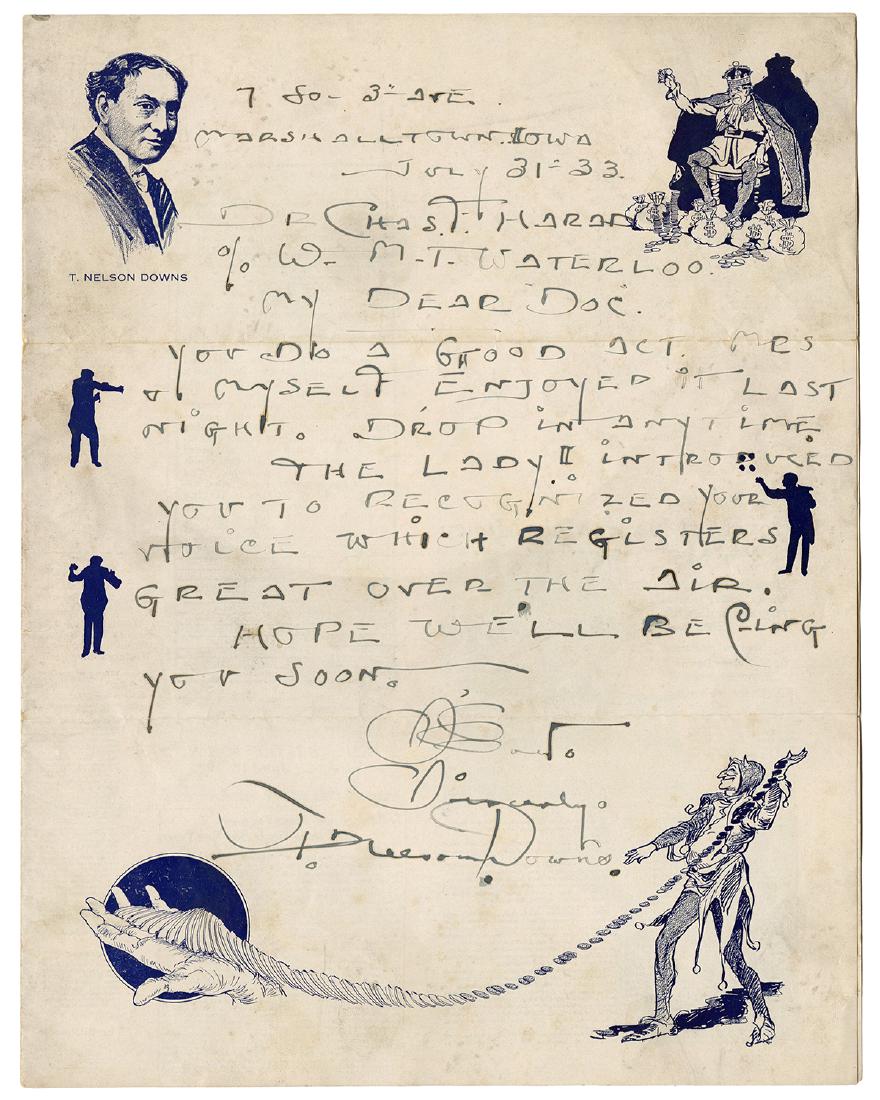 7 So- 3" AVE.
MARSHALLTOWN. IOWA
JULY 31" 33.
DR CHAS. T. HARAN
% W- M-T. WATERLOO.
MY DEAR DOC.
T. NELSON DOWNS
YOU DO A GOOD ACT. MRS
& MYSELF ENJOYED IT LAST
NIGHT. DROP IN ANYTIME
THE LADY I INTRODUCED
YOU TO RECOGNIZED YOUR
VOICE WHICH REGISTERS
GREAT OVER THE AIR.
HOPE WE'LL BE C-ING
YOU SOON.
Sincerely.
T. Nelson Downs.
$
$
$
$